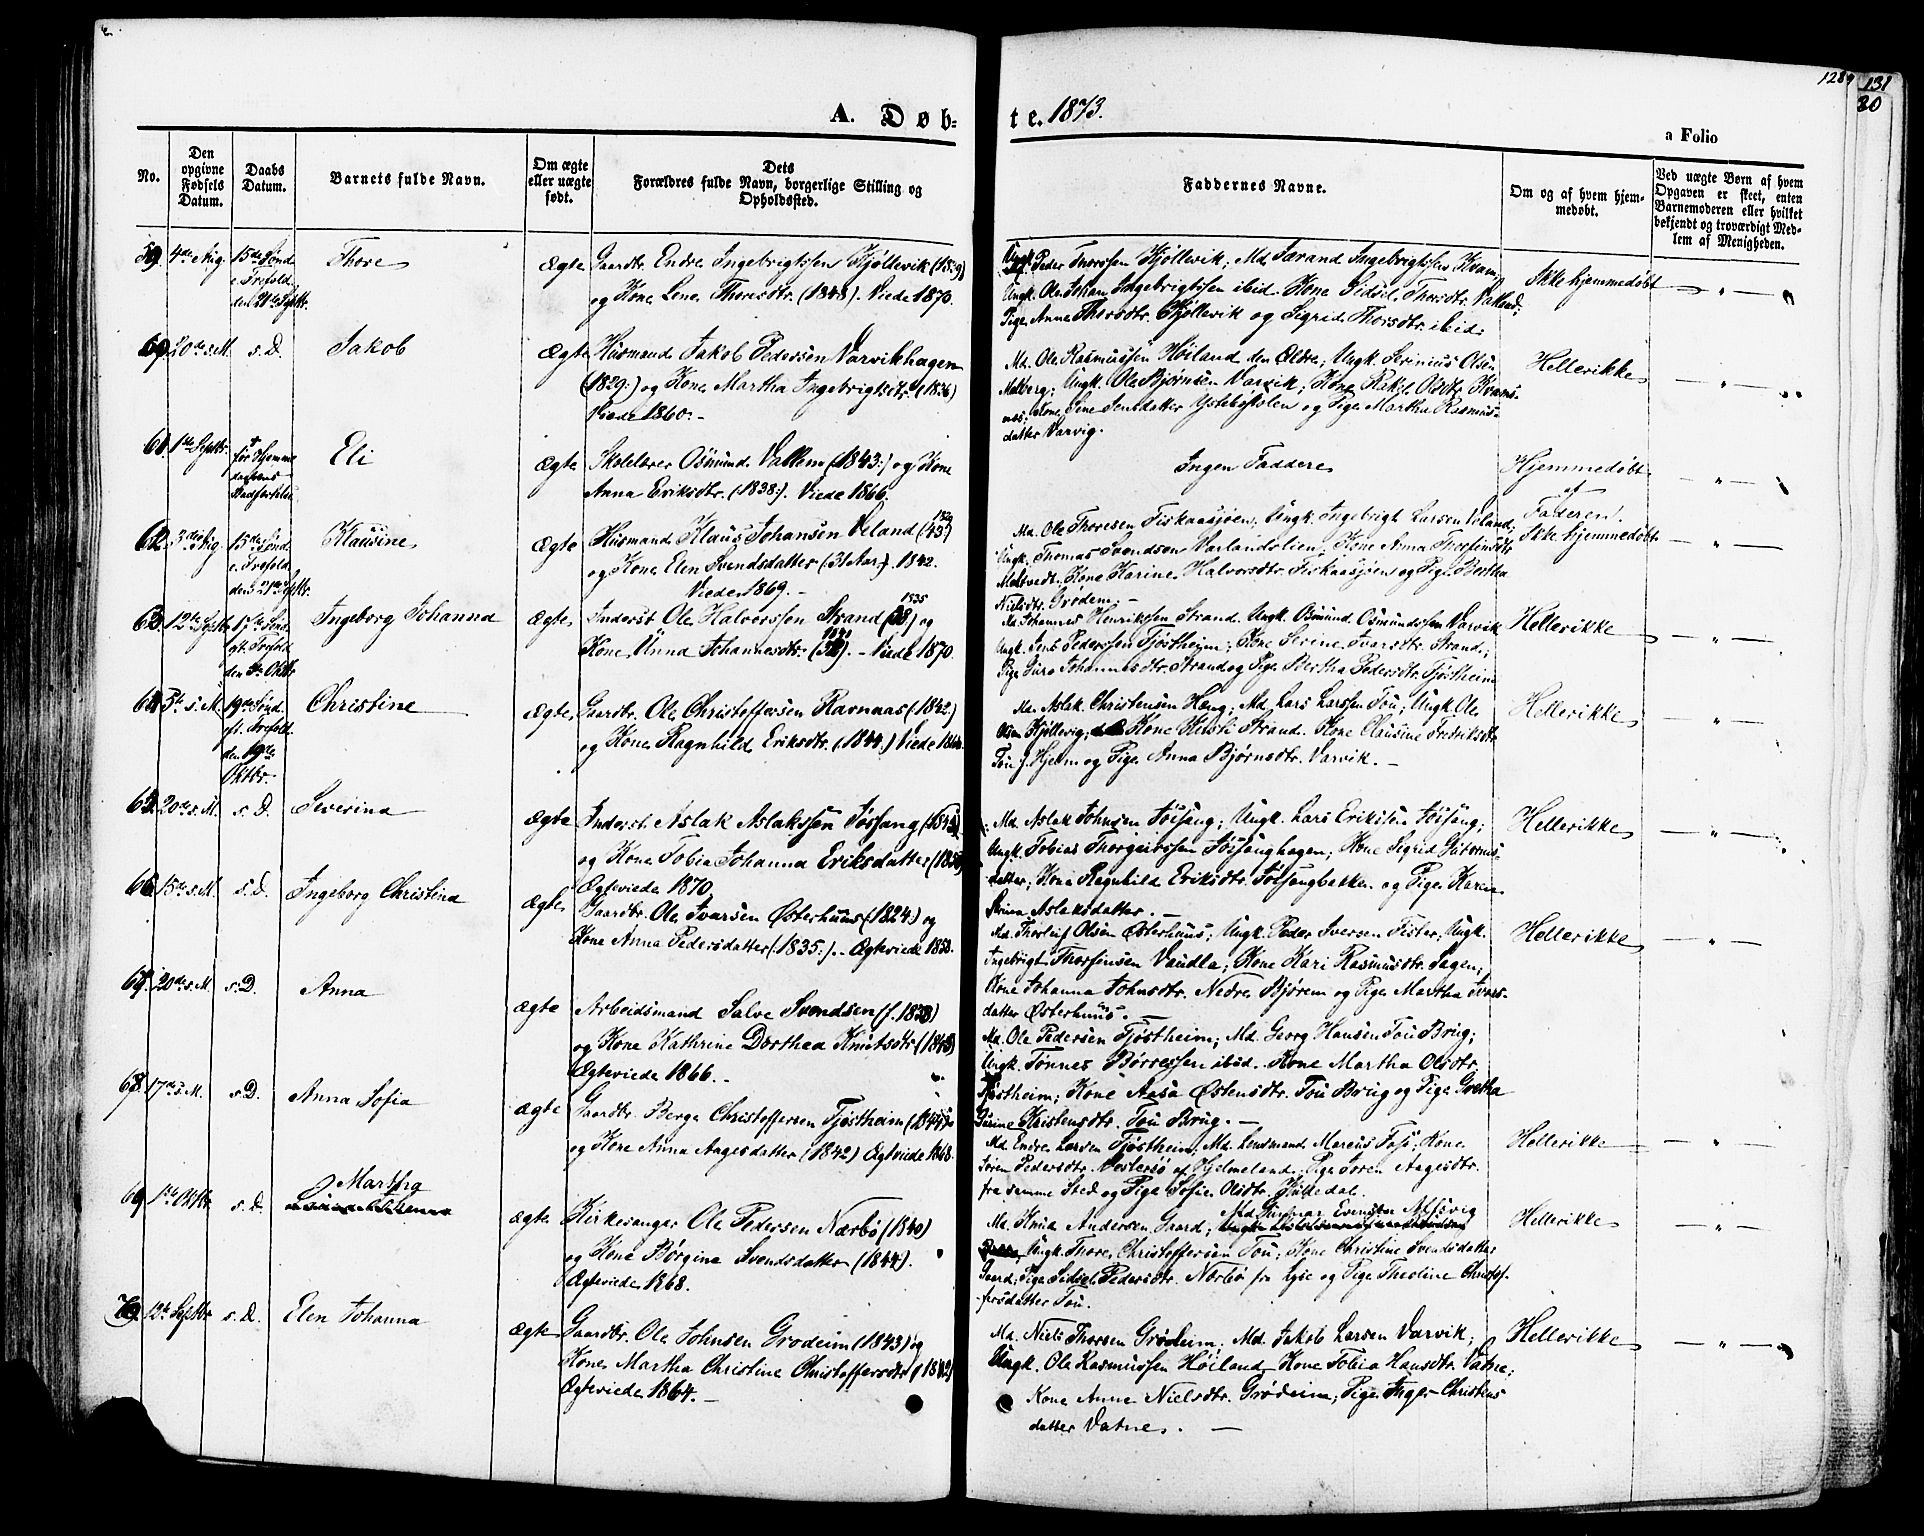 128 131
20
A. Døb-
te. 1873.
a Folio
No.
Den opgivne Fødsels Datum.
Daabs Datum.
Barnets fulde Navn.
Om ægte eller uægte født.
Dets Forældres fulde Navn, borgerlige Stilling og Opholdssted.
Faddernes Navne.
Om og af hvem hjemmedøbt.
Ved uægte Børn af hvem Opgaven er skeet, enten Barnemoderen eller hvilket bekjendt og troværdigt Medlem af Menigheden.
59. 4de Aug. 15de Sønd. e. Trefold. den 21de Septbr.
Thore
Ægte
Gaardbr. Endre Ingebrigtssen Kjøllevik
og Kone Lene Thoresdtr. (1848). Viede 1870.
Peder Thorssen Kjøllevik; Md. Særand Ingebrigtssen Kvam;
Ungk. Ole Johan Ingebrigtssen ibid. Kone Sidsel Thorsdtr. Valland;
Pige Anne Thorsdtr. Kjøllevik og Sigrid Thorsdtr. ibid.
Ikke hjemmedøbt — " —
60. 20de s. M. s. D.
Jakob
Ægte
Husmand Jakob Pedersen Varvikhagen
(1829:) og Kone Martha Ingebrigtsdtr. (1836)
Viede 1860. -
Ma. Ole Rasmussen Høiland den Ældre; Ungk. Serinius Olsen
Malberg; Ungk. Ole Bjørnsen Varvik; Kone Rakel Olsdtr. Kvams-
nes; Kone Sine Jensdatter og Pige Martha Rasmus-
datter Varvig.
Hellerikke — " —
61. 1ste Septbr. † før Hjemmedaabens Stadfæstelse
Eli
Ægte
Skolelærer Osmund Valkem (1843:) og Kone
Anna Eriksdtr. (1838:). Viede 1866.
Ingen Faddere
Hjemmedøbt
af
Faderen.
— " —
62. 3die Aug. 15de Sønd. e. Trefold. den 21de Septbr.
Klausine
Ægte
Husmand Klaus Johansen Veland (45)
og Kone Elen Svendsdatter (31 Aar). 1842.
Viede 1869. -
Ma. Ole Thoresen Fiskaasjøen; Ungk. Ingebrigt Larsen Veland;
Ungk. Thomas Svendsen Varlandslien; Kone Anna Thorfinsdtr.
Kone Karine Halvorsdtr. Fiskaasjøen og Pige Bertha
Nielsdtr. Grødem. -
Ikke hjemmedøbt — " —
63. 12te Septbr. 17de Sønd. eft. Trefold. den 5te Oktbr.
Ingeborg Johanna
Ægte
Inderst Ole Halvorssen Strand (38) og 1835
Kone Anna Johannesdtr. - Viede 1870
Ma. Johannes Henriksen Strand. Ungk. Osmund Osmundssen Varvik
Ungk. Jens Pederssen Tjøstheim; Kone Serine Ivarsdtr. Strand;
Pige Guro Johannesdtr. Strand og Pige Bertha Pedersdtr. Tjøstheim
Hellerikke — " —
64. 5te s. M. 19de Sønd. eft. Trefold. den 19de Oktbr.
Christine
Ægte
Gaardbr. Ole Christoffersen Ravnaas (1842.)
og Kone Ragnhild Eriksdtr. (1844.) Viede
Ma. Aslak Christensen Hæng; Md. Lars Larssen Tou; Ungk. Ole
Olsen Kjøllevig; Kone Kersti Strand. Kone Clausine Fredriksdtr.
Tou, f. Hjelm og Pige Anna Bjørnsdtr. Varvik. -
Hellerikke — " —
65. 20de s. M. s. D.
Severina
Ægte
Inderst. Aslak Aslakssen Jøssang
og Kone Tobia Johanna Eriksdatter
Ægteviede 1870.
Md. Aslak Johnsen Jøssang; Ungk. Lars Eriksen Jøssang;
Ungk. Tobias Thorgeirssen Jøssanghagen; Kone Sigrid Gutorms-
datter; Kone Ragnhild Eriksdtr. Jøssangbakken og Pige Karen
Serina Aslaksdatter. —
Hellerikke — " —
66. 15de s. M. s. D.
Ingeborg Christina
Ægte
Gaardbr. Ole Ivarsen Østerhuus (1824:) og
Kone Anna Pedersdatter (1835:). - Ægteviede 1858.
Md. Thorleif Olsen Østerhuus; Ungk. Peder Iversen Fister; Ungk.
Ingebrigt Thorfinsen Vaudla; Kone Kari Rasmusdtr. Sagen;
Kone Johanna Johnsdtr. Nedre Bjørem og Pige Martha Ivars-
datter Østerhuus. —
Hellerikke — " —
67. 20de s. M. s. D.
Anna
Ægte
Arbeidsmand Salve Svendsen
og Kone Kathrine Dorthea Knutsdtr.
Ægteviede 1866. -
Ma. Ole Pedersen Tjøstheim; Md. Georg Hansen Tou Brug;
Ungk. Tønnes Børressen ibid. Kone Martha Olsdtr.
Tjøstheim; Kone Aasa Østensdtr. Tou Brug og Pige Gretha
Gurine Kristensdtr. Tou Brug. —
68. 17de s. M. s. D.
Anna Sofia
Ægte
Gaardbr. Berge Christoffersen Tjøstheim
og Kone Anna Aagesdatter (1842) Ægteviede 1868.
Md. Endre Larsen Tjøstheim; Md. Lensmand Marcus Kone
Søren Pedersdtr. Vestersø af Hjelmeland; Pige Søren Aagesdtr.
fra samme Sted og Pige Sofie Olsdtr. Kilddal.
Hellerikke — " —
69. 1ste Oktbr. s. D.
Martha
Ægte
Kirkesanger Ole Pedersen Nærbø (1840)
og Kone Børgina Svendsdatter (1844).
Ægteviede 1868.
Ma. Andersen Gaard; Md. Evensen
Ungk. Thore Christoffersen Tou; Kone Christine Svendsdatter
Gaard; Pige Sidsel Pedersdtr. Nærbø fra Lye og Pige Theoline Christof-
fersdatter Tou.
Hellerikke — " —
70. 13de Septbr. s. D.
Elen Johanna
Ægte
Gaardbr. Ole Johnsen Grødeim (1843) og
Kone Martha Christine Christoffersdtr.
Ægteviede 1864. —
Md. Niels Thorsen Grødeim; Md. Jakob Larsen Varvik;
Ungk. Ole Rasmussen Høiland; Kone Tobia Hansdtr. Vatne;
Kone Anne Nielsdtr. Grødeim; Pige Inger Christens-
datter Vatne. —
Hellerikke — " —